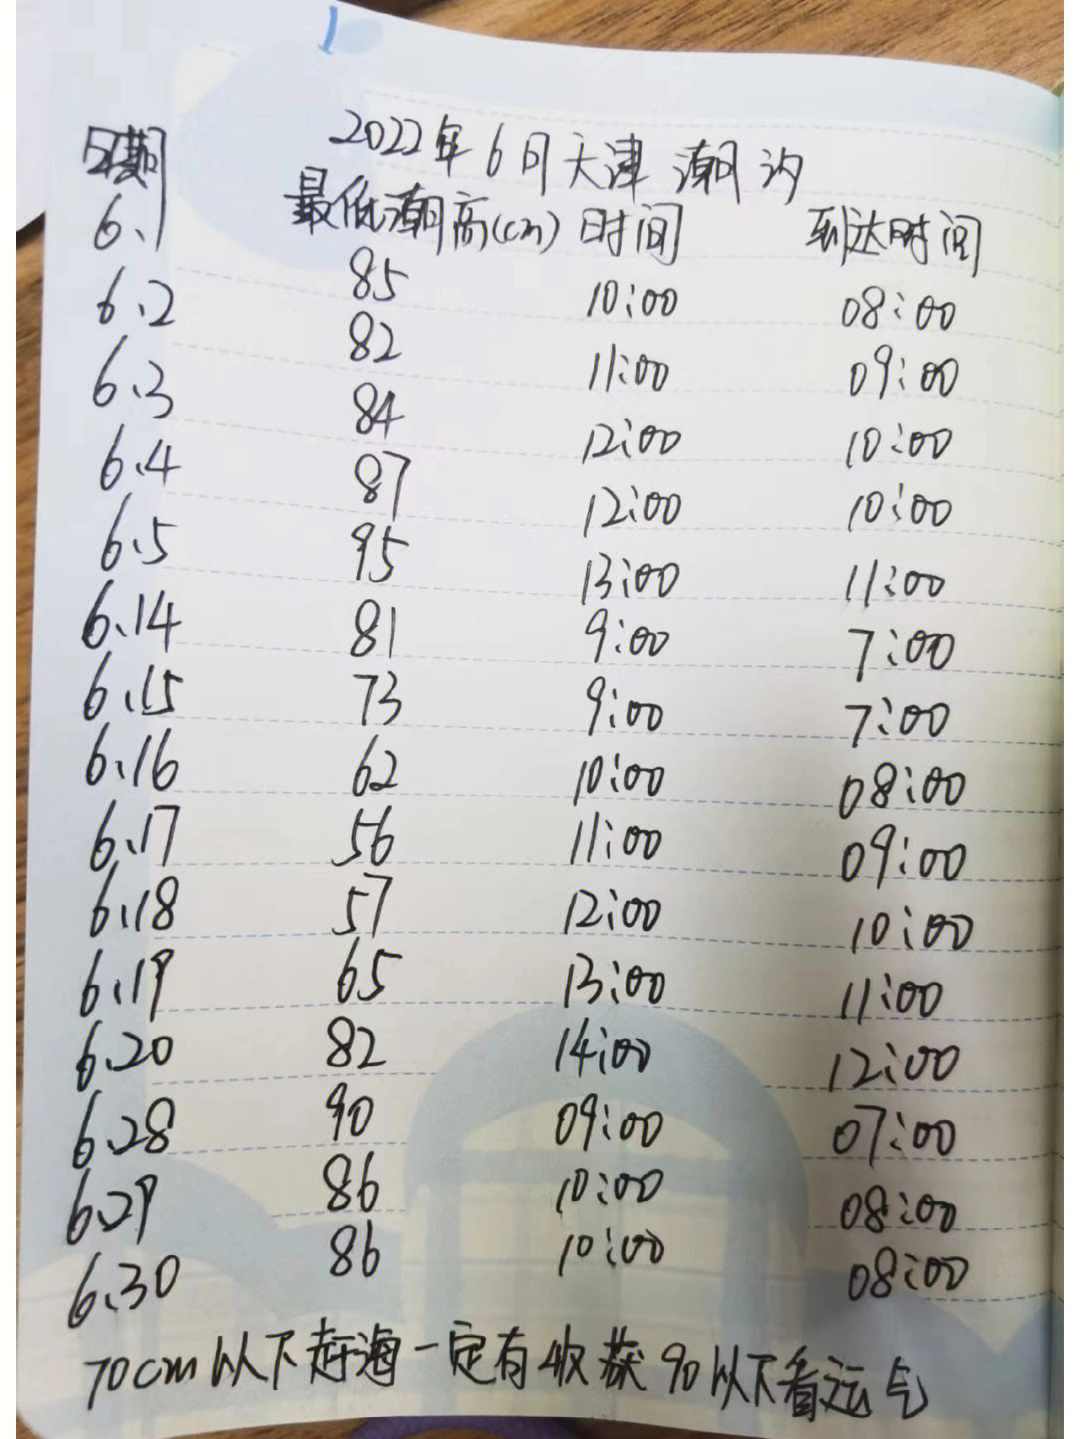 2022年6月天津潮汐
日期 最低潮高(cm) 时间 到达时间
6.1 85 10:00 08:00
6.2 82 11:00 09:00
6.3 84 12:00 10:00
6.4 87 12:00 10:00
6.5 95 13:00 11:00
6.14 81 9:00 7:00
6.15 73 9:00 7:00
6.16 62 10:00 08:00
6.17 56 11:00 09:00
6.18 57 12:00 10:00
6.19 65 13:00 11:00
6.20 82 14:00 12:00
6.28 90 09:00 07:00
6.29 86 10:00 08:00
6.30 86 10:00 08:00
70cm以下赶海一定有收获 90以下看运气